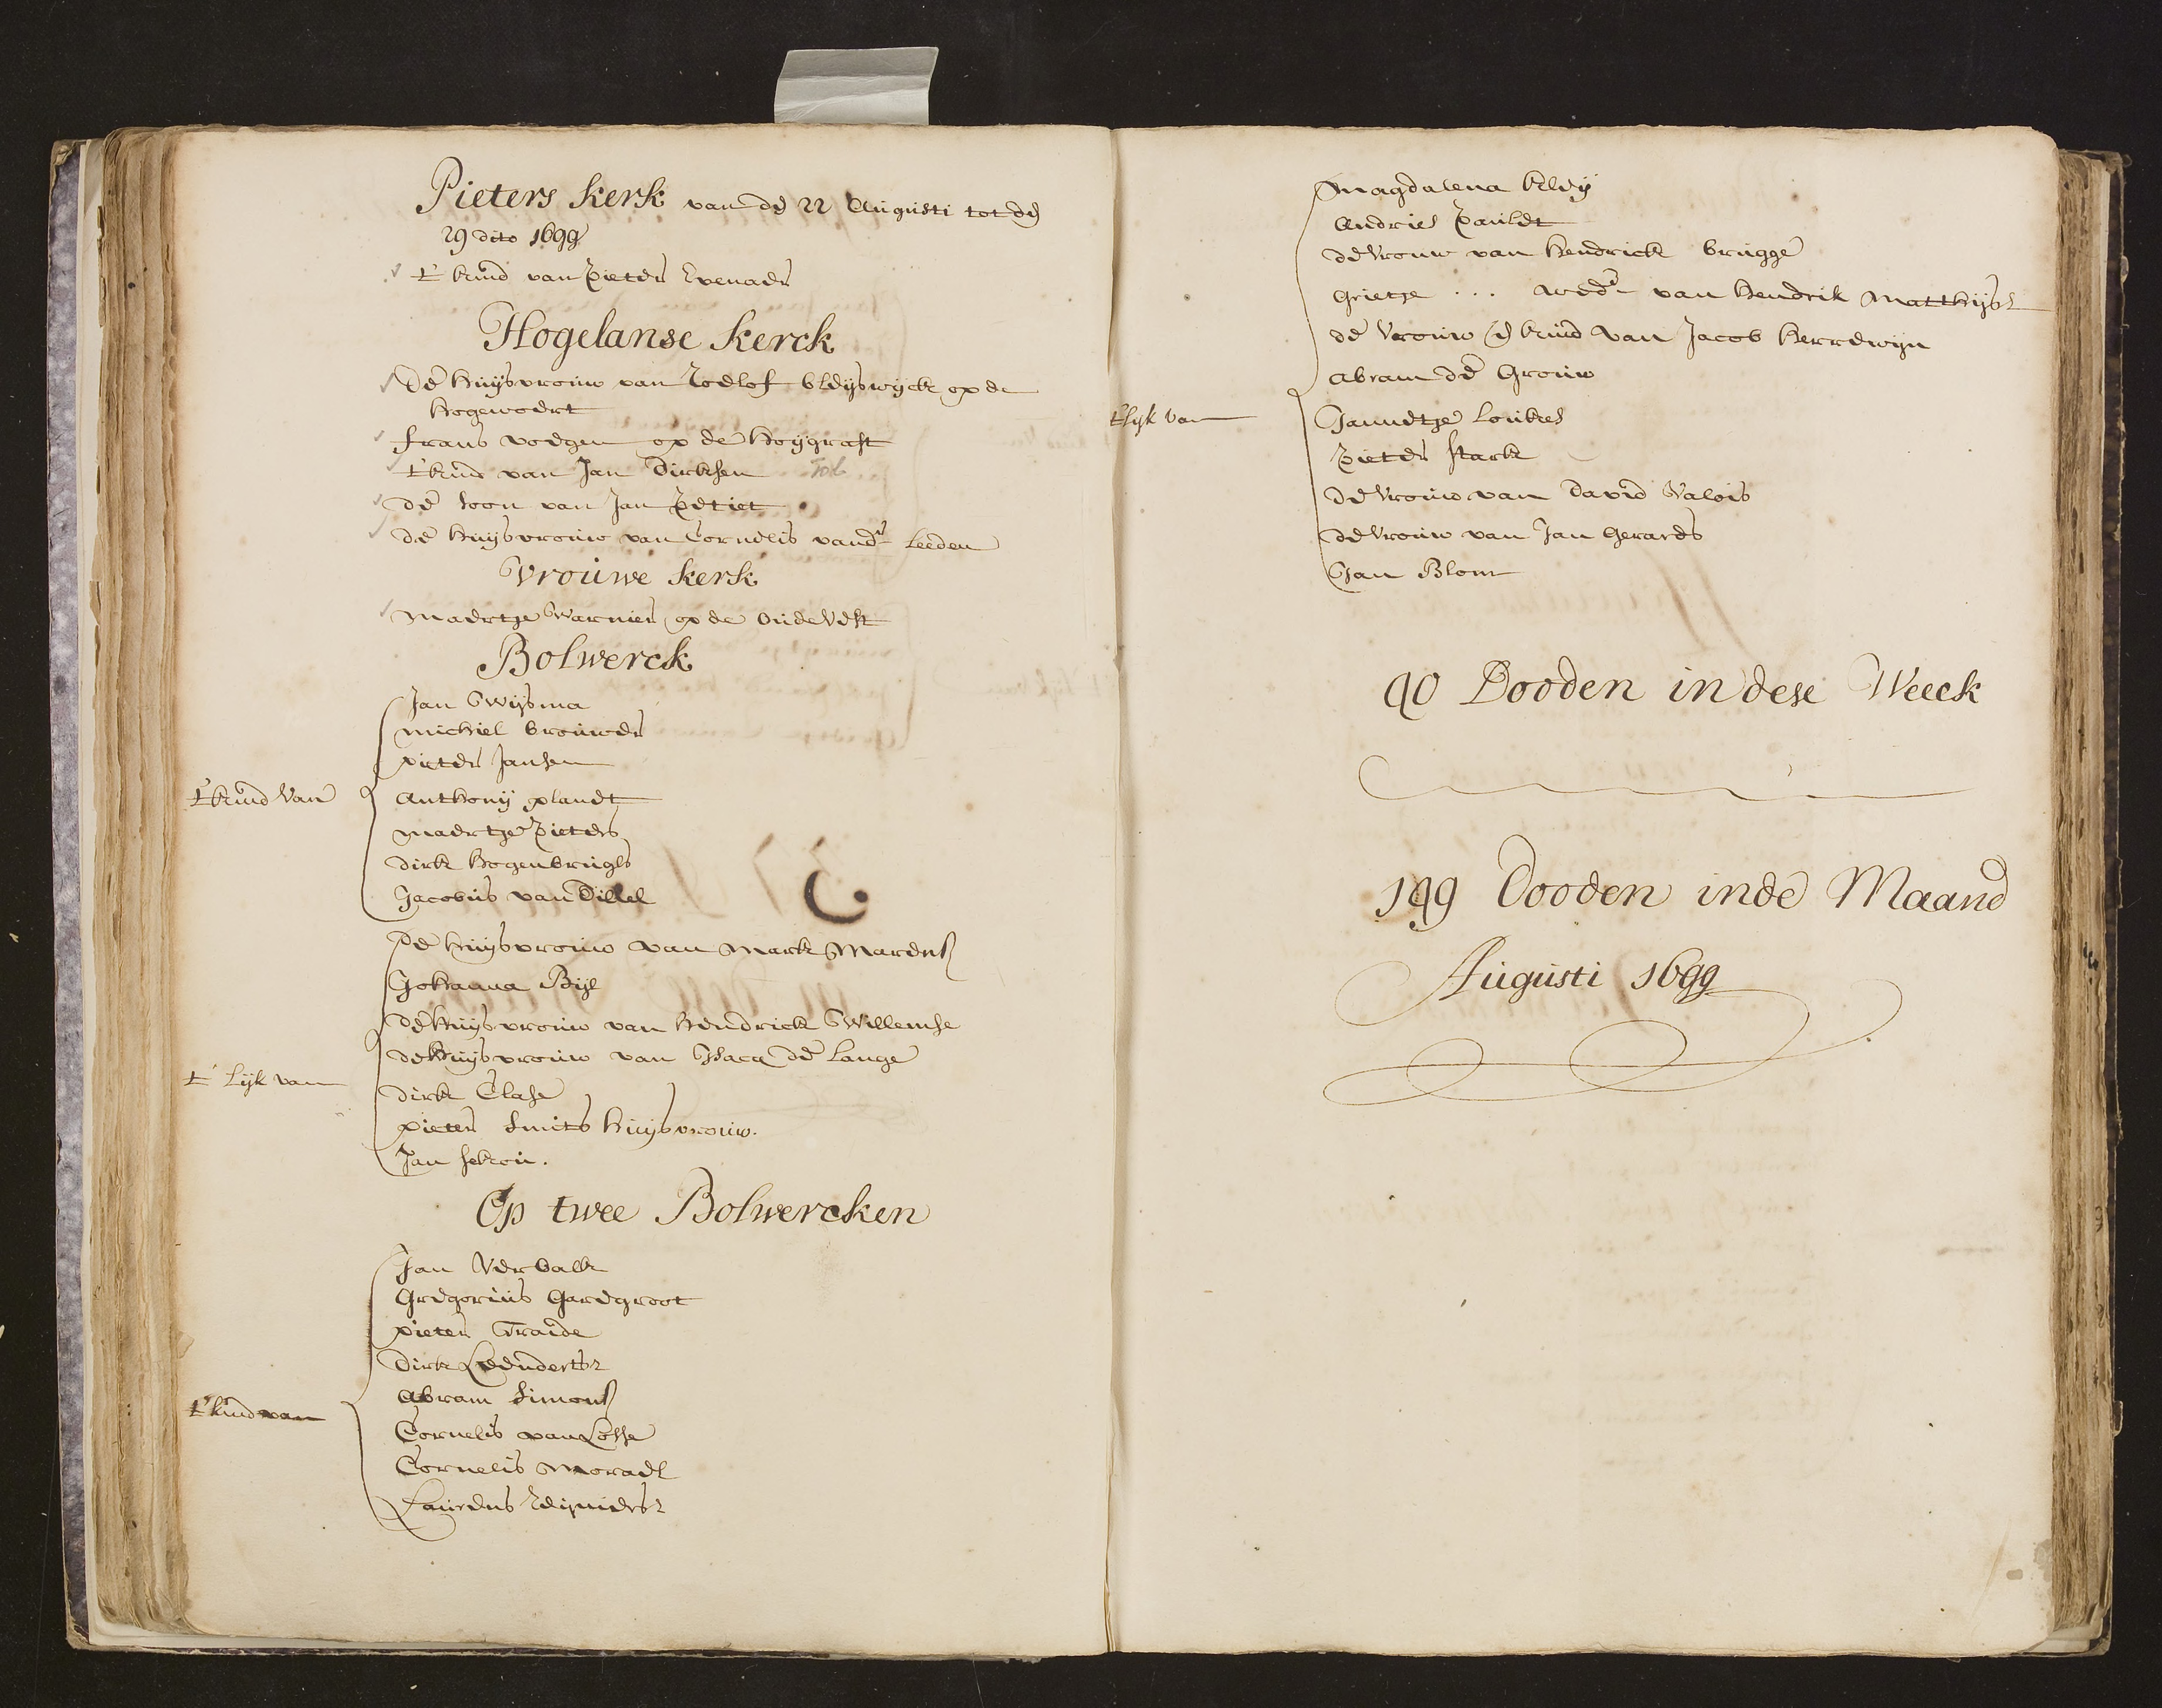 Pieters Kerk van de 22 Augusti tot de
29 dito 1699
t' kind van Pieter Evenaer
Hogelanse Kerck
De huijsvrouw van Roelof Bleijswijck op de
hogewoert
frans voegen op de hoijgraft
t' kind van Jan Dircksen
de soon van Jan Petiet
de huijsvrouw van Cornelis vandr Leeden
Vrouwe Kerk
Maertge Warnier op de Oude Vest
Bolwerck
Jan Wijsma
Michiel brouwer
pieter Jansen
t' kind Van
Anthonij plandt
Maertge Pieters
dirk hogenbrugh
Jacobus van Dillel
De huijsvrouw van Mark Marens
Johanna Bijl
de huijsvrouw van Hendrick Willemse
de huijsvrouw van Isacq de Lange
t' Lijk van
dirk Clase
pieter Smits huijsvrouw.
Jan
Op twee Bolwercken
Jan Verbalk
Gregorius Garegroot
pieter Fraide
Dirk Leenderts
Abram Simons
t' kind van
Cornelis van Losse
Cornelis Morael
Laurens Reijniers
Magdalena kleij
Andries Pauldt
de Vrouw van Hendrick brugge
Grietje ... wedr van Hendrik Matthijs
de Vrouw en kind van Jacob Herrewijn
Abram de Grouw
t' lijk Van
Jannetge Loukes
Pieter Stark
de Vrouw van David Valois
de Vrouw van Jan Gerards
Jan Blom
40 Dooden in dese Weeck
149 Dooden inde Maand
Augusti 1699